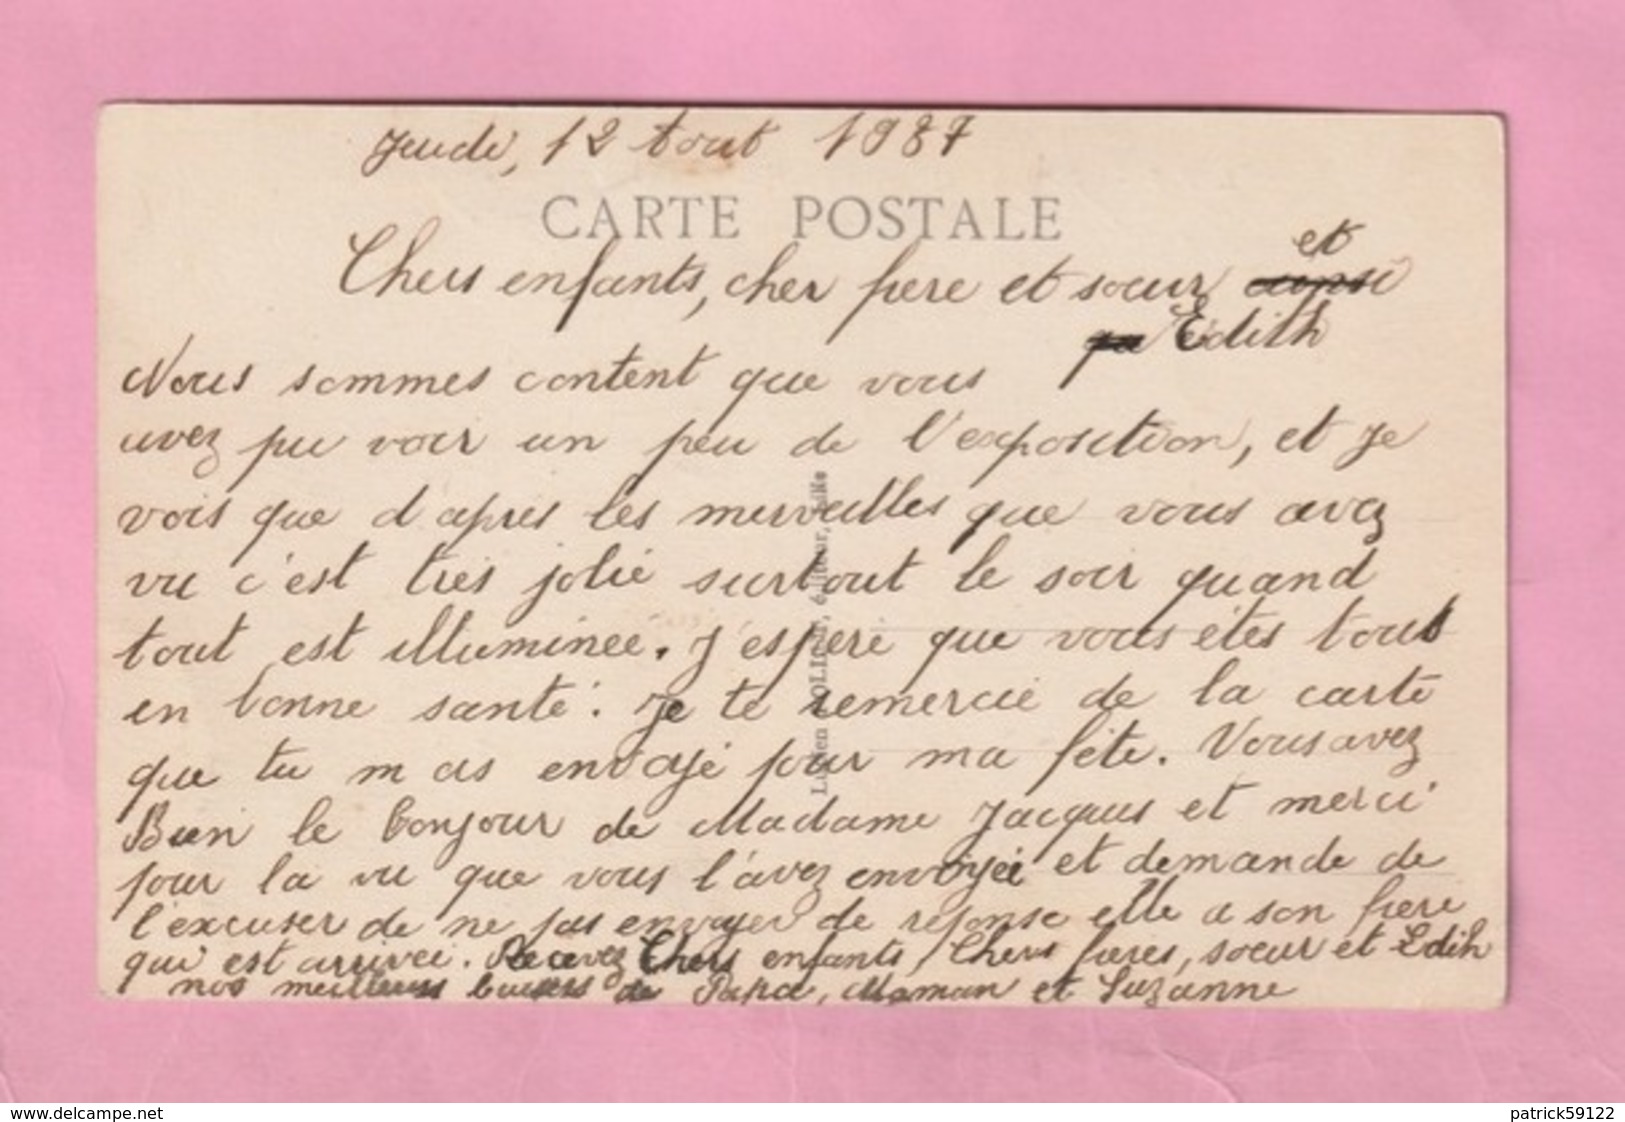 Jeudi, 12 Aout 1937
CARTE POSTALE
Chers enfants, cher frere et sœur et
Edith
Nous sommes content que vous
avez pu voir un peu de l'exposition, et je
vois que d'apres les merveilles que vous avez
vu c'est tres jolie surtout le soir quand
tout est illuminee. J'espere que vous êtes tous
en bonne santé. Je te remercie de la carte
que tu m as envoyé pour ma fête. Vous avez
Bien le bonjour de Madame Jacques et merci
pour la vu que vous l'avez envoyée et demande de
l'excuser de ne pas envoyer de reponse elle a son frere
qui est arrivee. Recevez Chers enfants, Chers freres, soeur et Edith
nos meilleurs baisers de Papa, Maman et Suzanne
Lucien éditeur,
www.delcampe.net
patrick59122